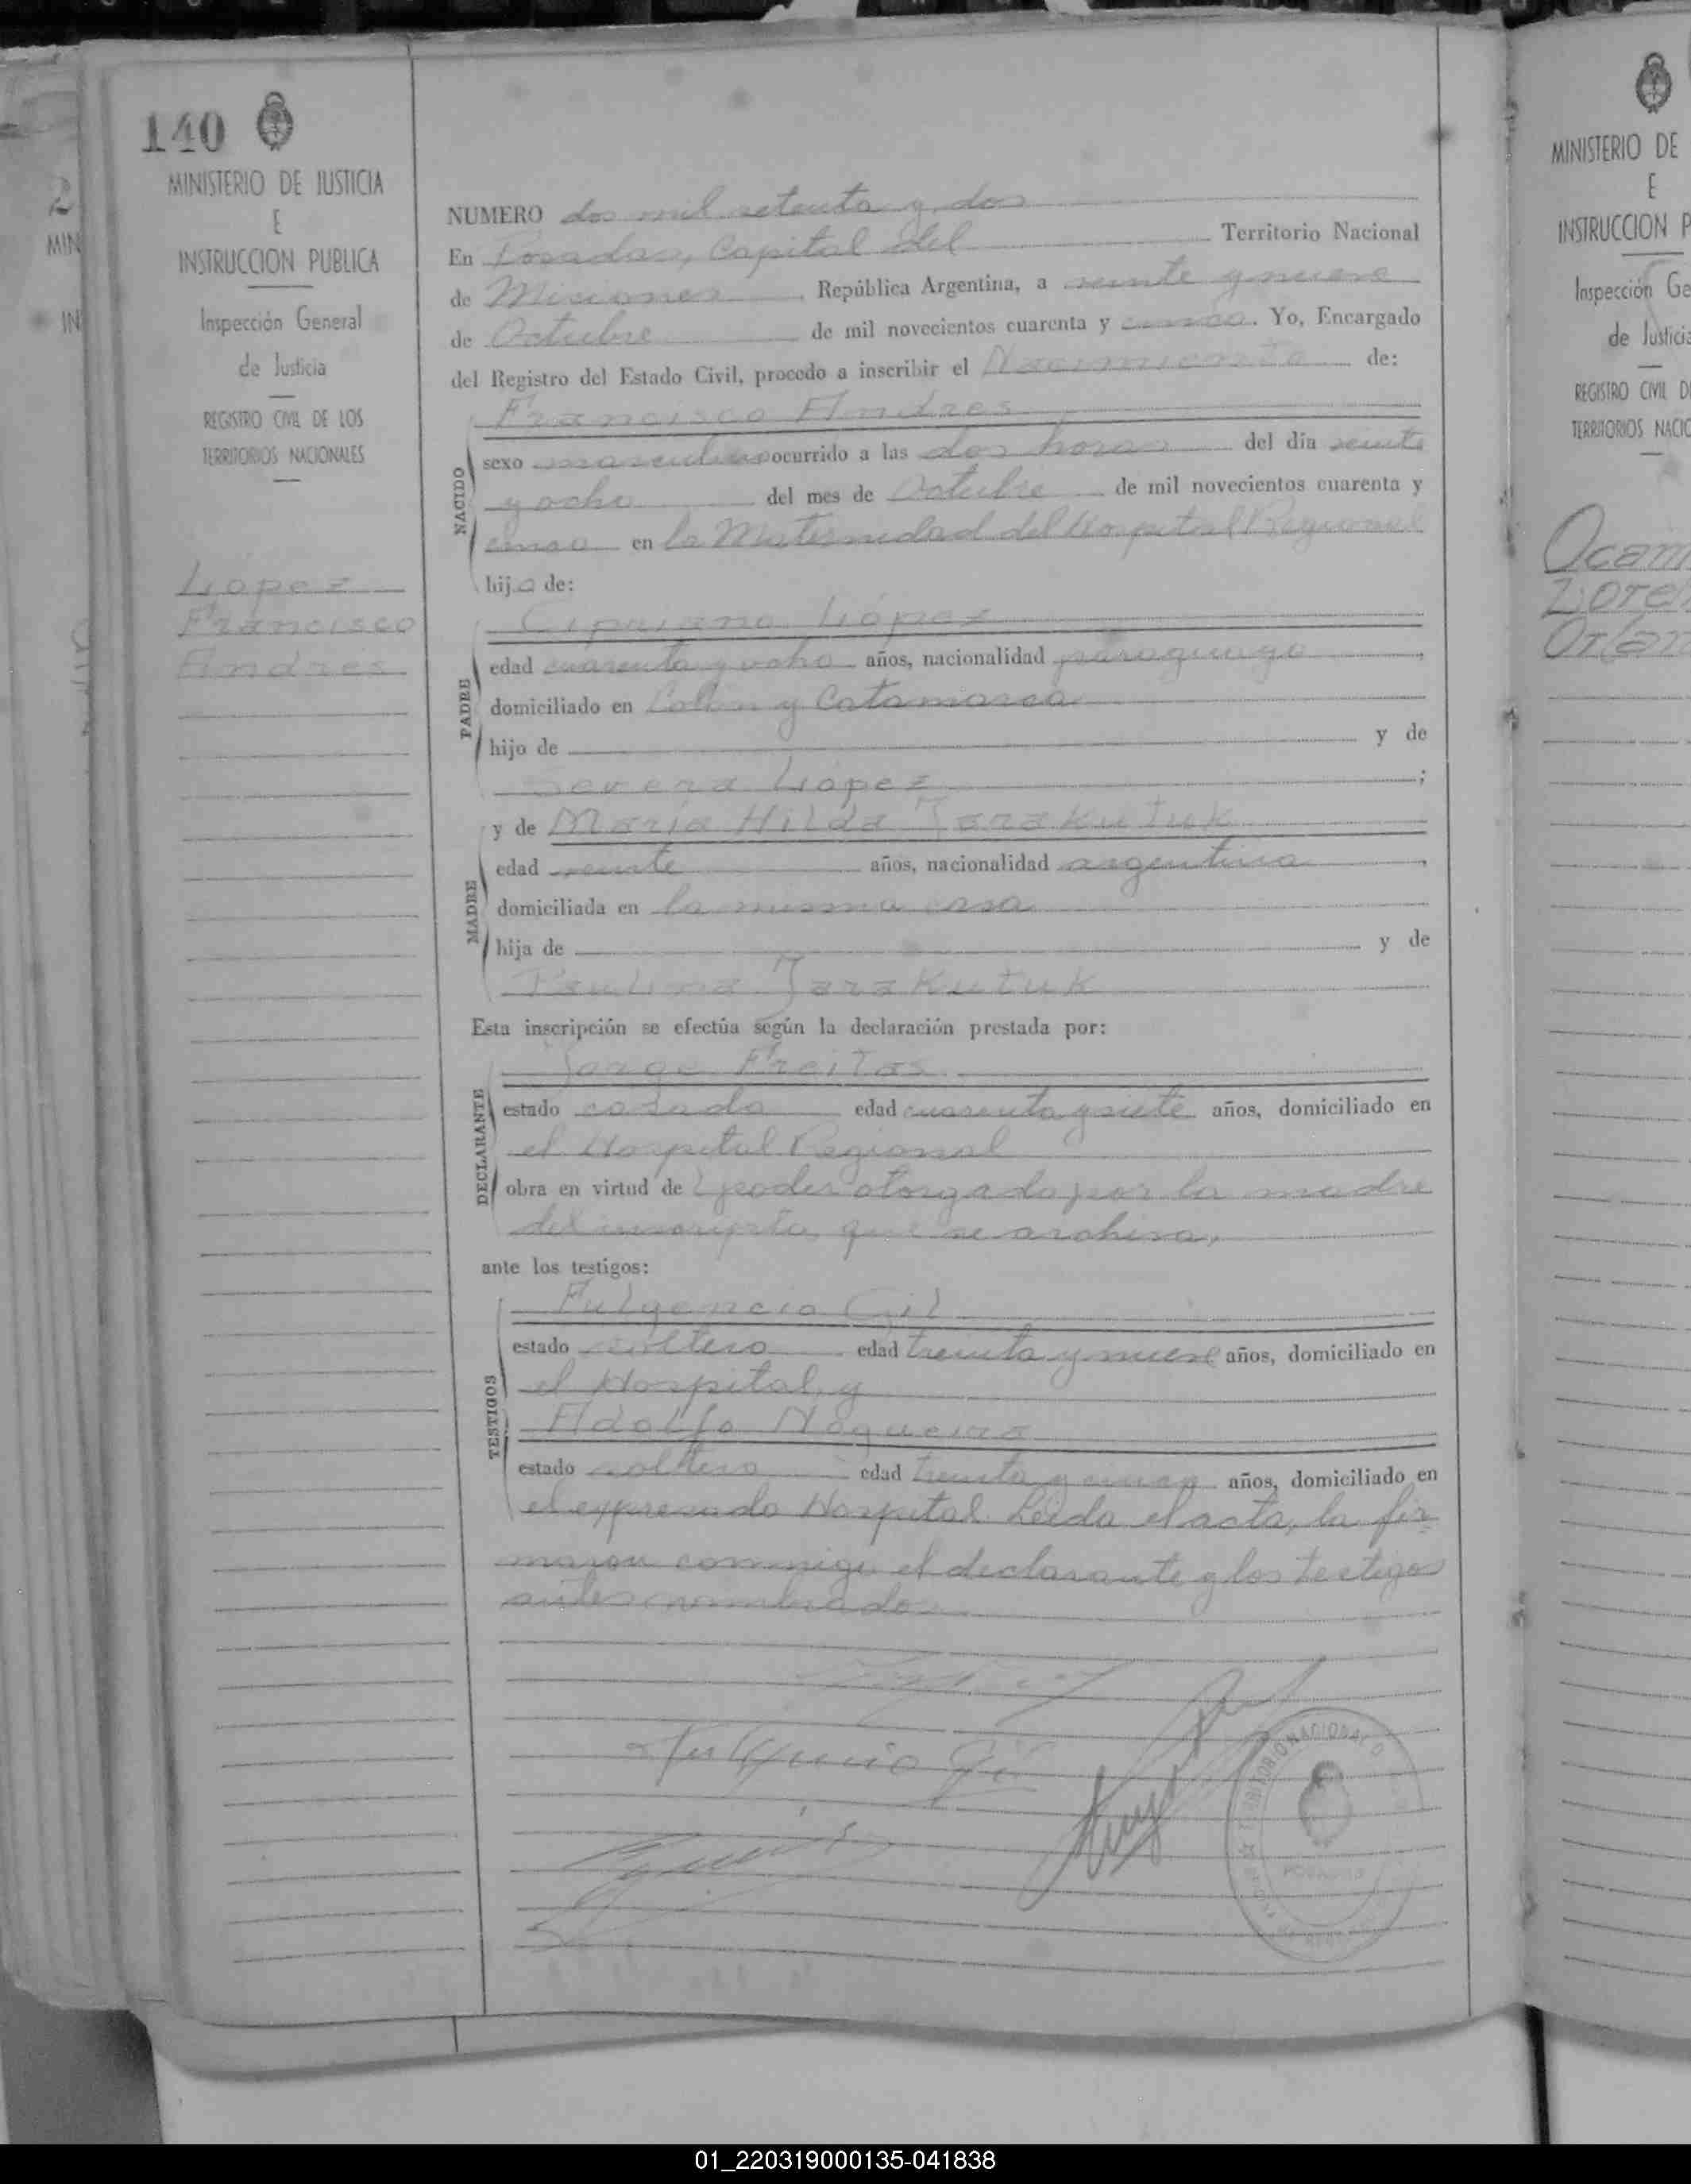 140
MINISTERIO DE JUSTICIA
E
INSTRUCCION PUBLICA
Inspección General
de Justicia
REGISTRO CIVIL DE LOS
TERRITORIOS NACIONALES
López
Francisco
Andrés
NUMERO dos mil setenta y dos
En Posadas, Capital del Territorio Nacional
de Misiones, República Argentina, a veinte y nueve
de Octubre de mil novecientos cuarenta y cinco. Yo, Encargado
del Registro del Estado Civil, procedo a inscribir el Nacimiento de:
NACIDO
Francisco Andres
sexo masculino ocurrido a las dos horas del día veinte
y ocho del mes de Octubre de mil novecientos cuarenta y
cinco en la Maternidad del Hospital Regional
hijo de:
PADRE
Cipriano López
edad cuarenta y ocho años, nacionalidad paraguayo,
domiciliado en Colón y Catamarca
hijo de y de
Severa López;
MADRE
y de María Hilda Jarakutuk
edad veinte años, nacionalidad argentina,
domiciliada en la misma casa
hija de y de
Paulina Jarakutuk
Esta inscripción se efectúa según la declaración prestada por:
DECLARANTE
Jorge Freitas
estado casado edad cuarenta y siete años, domiciliado en
el Hospital Regional
obra en virtud de poder otorgado por la madre
del inscripto, que se archiva,
ante los testigos:
TESTIGOS
Fulgencio Gil
estado soltero edad treinta y nueve años, domiciliado en
el Hospital, y
Adolfo Nogueira
estado soltero edad treinta y cinco años, domiciliado en
el expresado Hospital. Leída el acta, la fir
maron conmigo el declarante y los testigos
antes nombrados.
Fulgencio Gil
MINISTERIO DE
E
INSTRUCCION P
Inspección Ge
de Justicia
REGISTRO CIVIL D
TERRITORIOS NACIO
Ocam
Loren
Orlan
2
MIN
IN
01_220319000135-041838